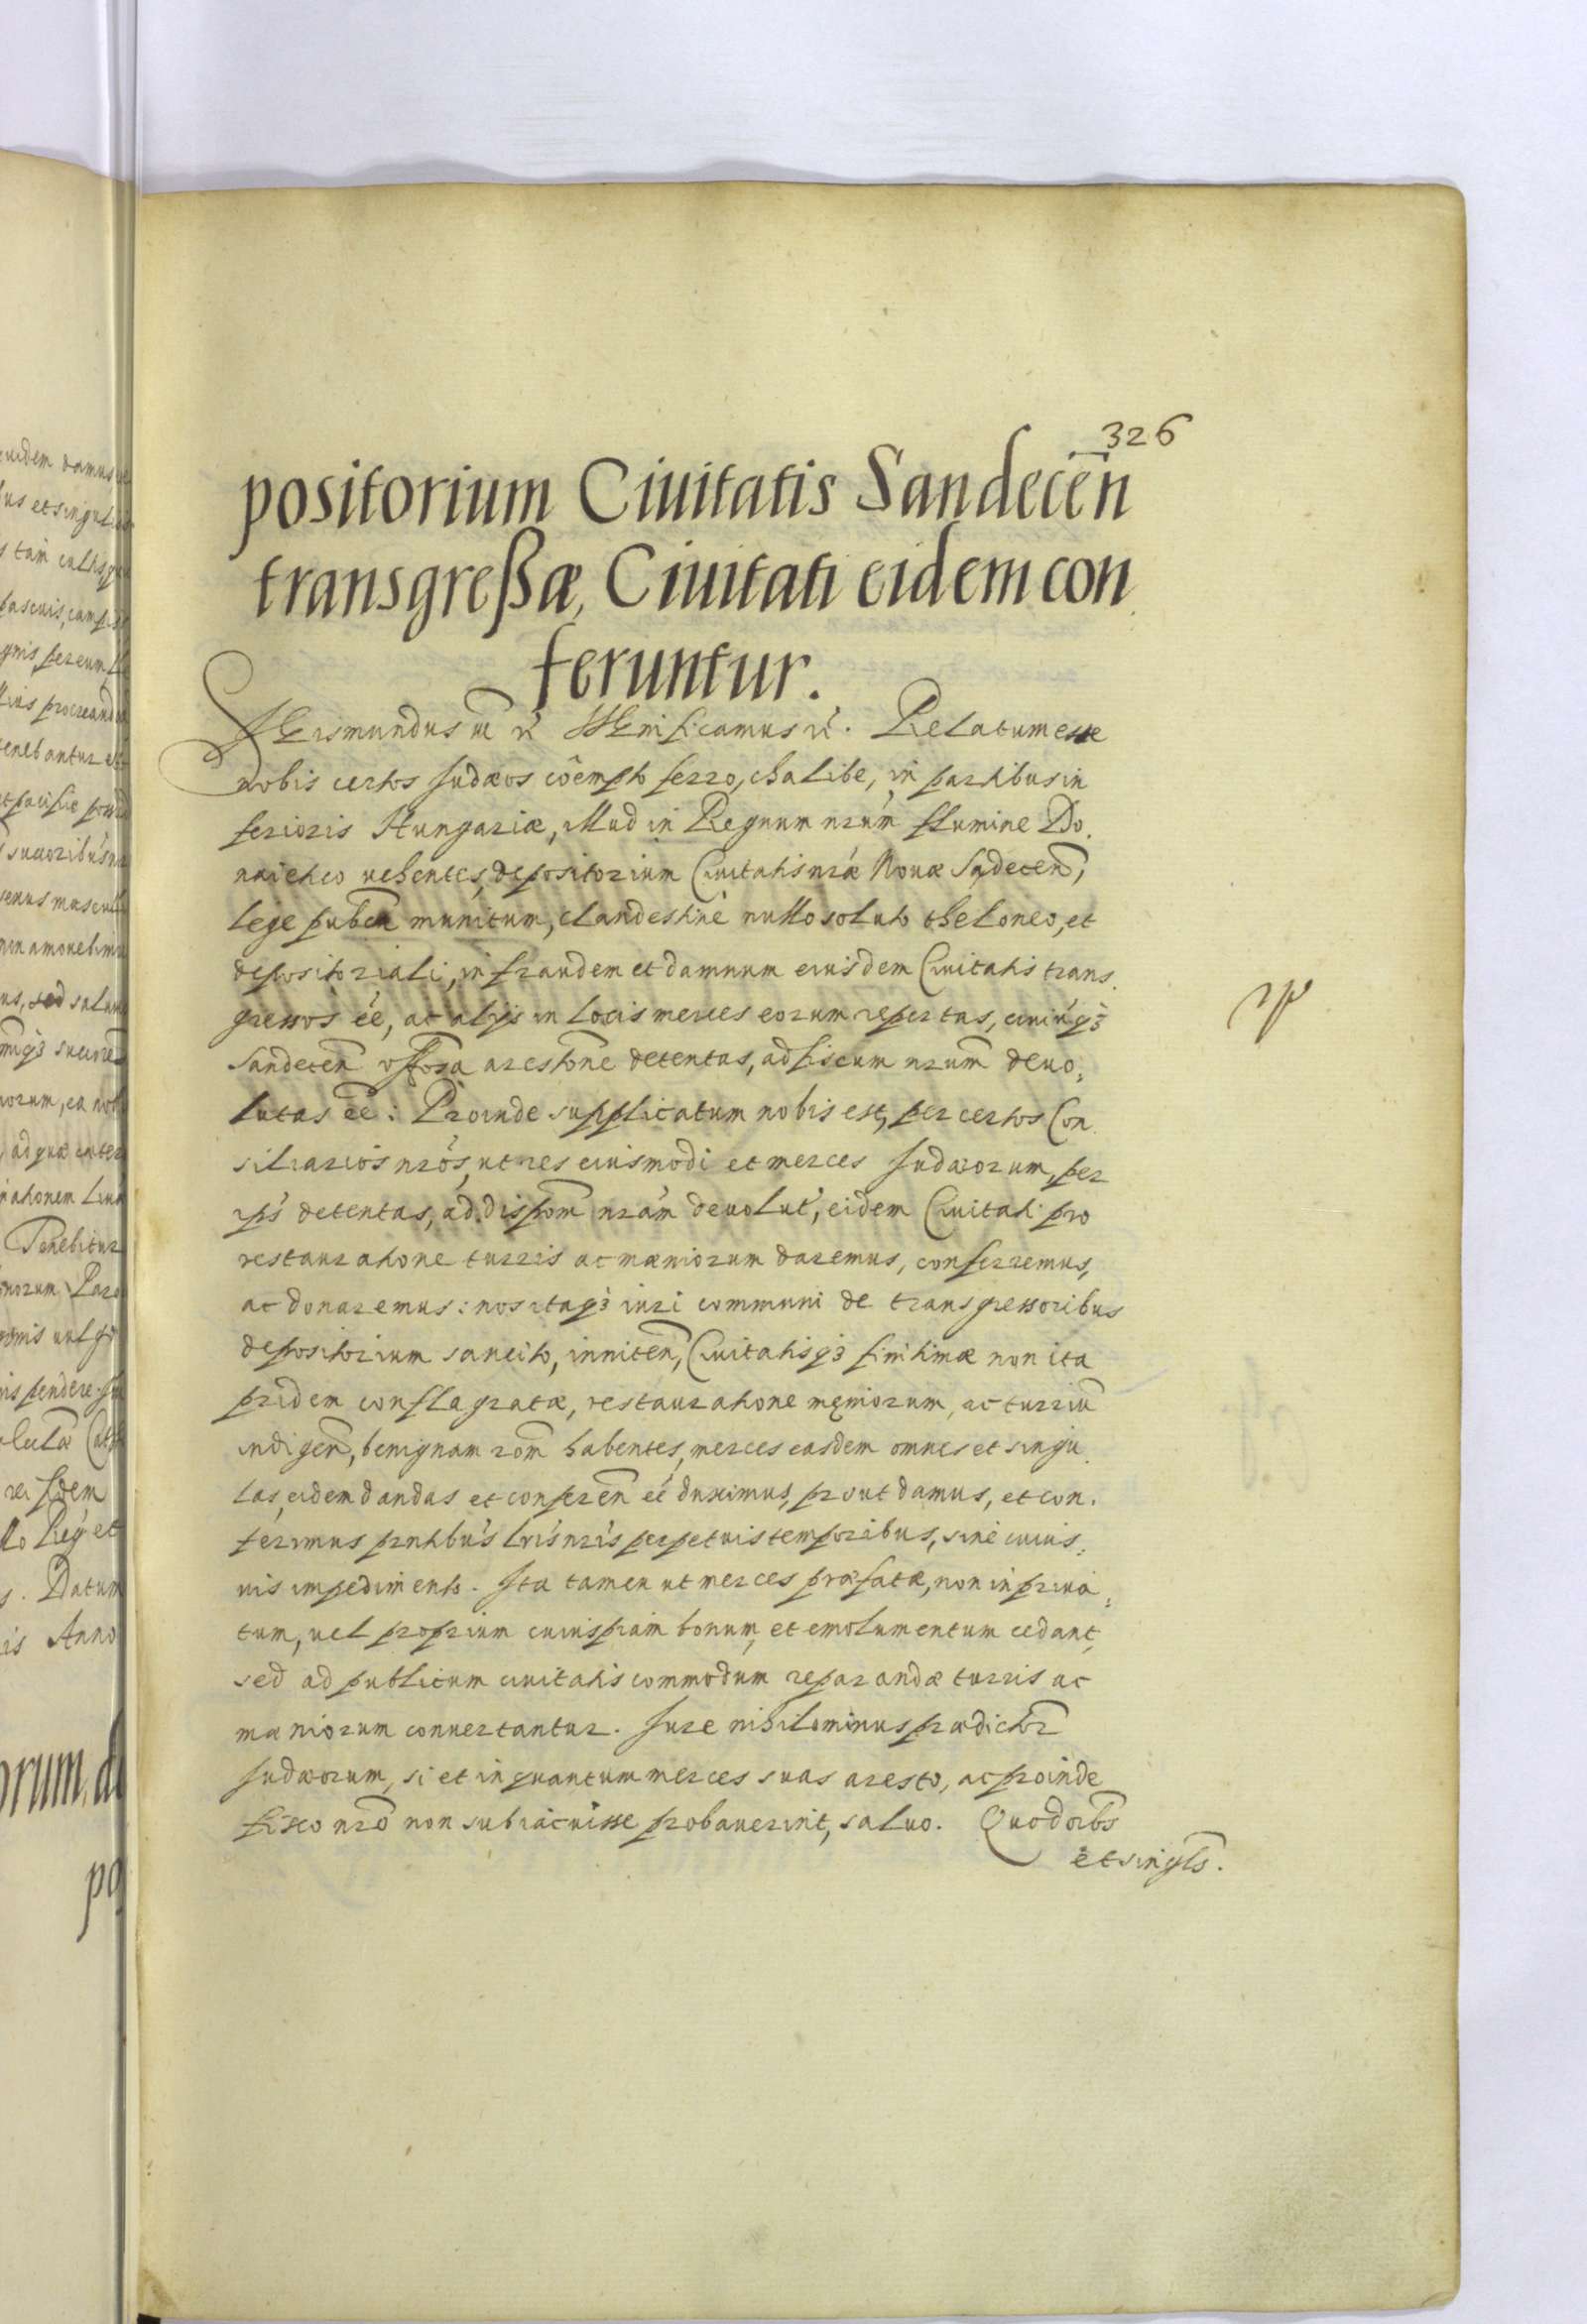 326
positorium Ciuitatis Sandecen̄
transgreßæ, Ciuitati eidem con
feruntur.
Sigismundus etc Significamus etc. Relatum esse
nobis certos Judæos cōempto ferro, chalibe, in partibus in
ferioris Hungariæ, illud in Regnum nrūm flumine Do
naieheo uehentes, depositorium Ciuitatis nrǽ Nouæ Sądecen̄,
lege publica munitum, clandestinè nullo soluto theloneo, et
depositoriali, in fraudem et damnum eiusdem Ciuitatis trans
gressos eé, ac alijs in locis merces eorum repertas, ciuiúq3
Sandecen̄ arestōne detentas, ad fiscum nrum̄ deuo,
lutas ēē: Proinde supplicatum nobis est, per certos Con
siliarios nrós, ut res eiusmodi et merces Judæorum, per
ips detentas, ad dispom̄ nrám deuolut, eidem Ciuitati pro
restauratione turris ac mæniorum daremus, conferremus,
ac donaremus: nos itaq3 iuri communi de transgressoribus
depositorium sancito, inniten̄, Ciuitatisq3 finitimæ non ita
pridem conflagratæ, restauratione męniorum, ac turriū
indigen̄, benignam rom̄ habentes, merces easdem omnes et singu
las, eidem dandas et conferen̄ eé duximus, prout damus, et con.
ferimus pntibús lrís nrís perpetuis temporibus, sine cuius,
uis impedimento. Ita tamen ut merces præfatæ, non in priua,
tum, uel proprium cuiuspiam bonum, et emolumentum cedant,
sed ad publicum ciuitatis commodum reparandæ turris ac
mæniorum conuertantur. Jure nihilominus prædictor̄
Judæorum, si et in quantum merces suas aresto, ac proinde
fisco nrō non subiacuisse probauerint, saluo. Quod oībs
et singlīs.